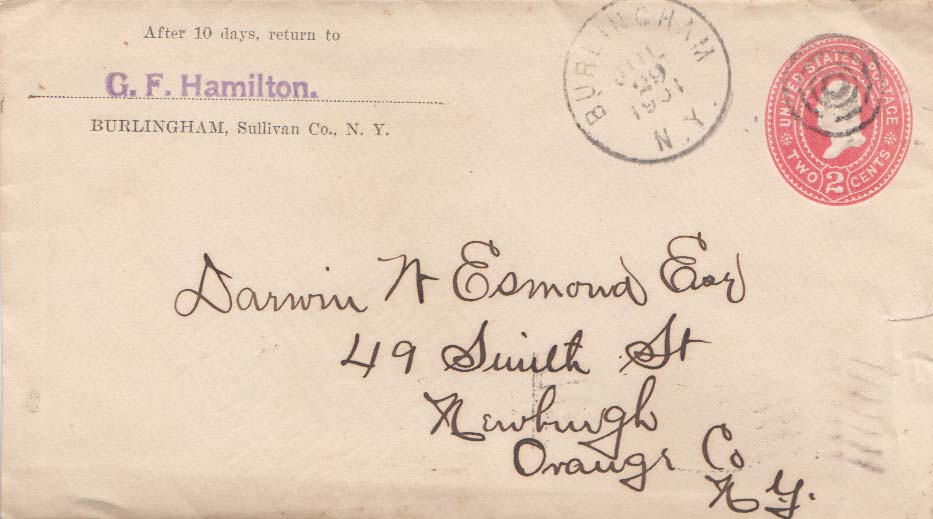 After 10 days, return to
G. F. Hamilton.
BURLINGHAM, Sullivan Co., N. Y.
BURLINGHAM
JUL
29
1901
N.Y.
UNITED STATES POSTAGE
TWO 2 CENTS
Darwin W Esmond Esq
49 Smith St
Newburgh
Orange Co
N.Y.